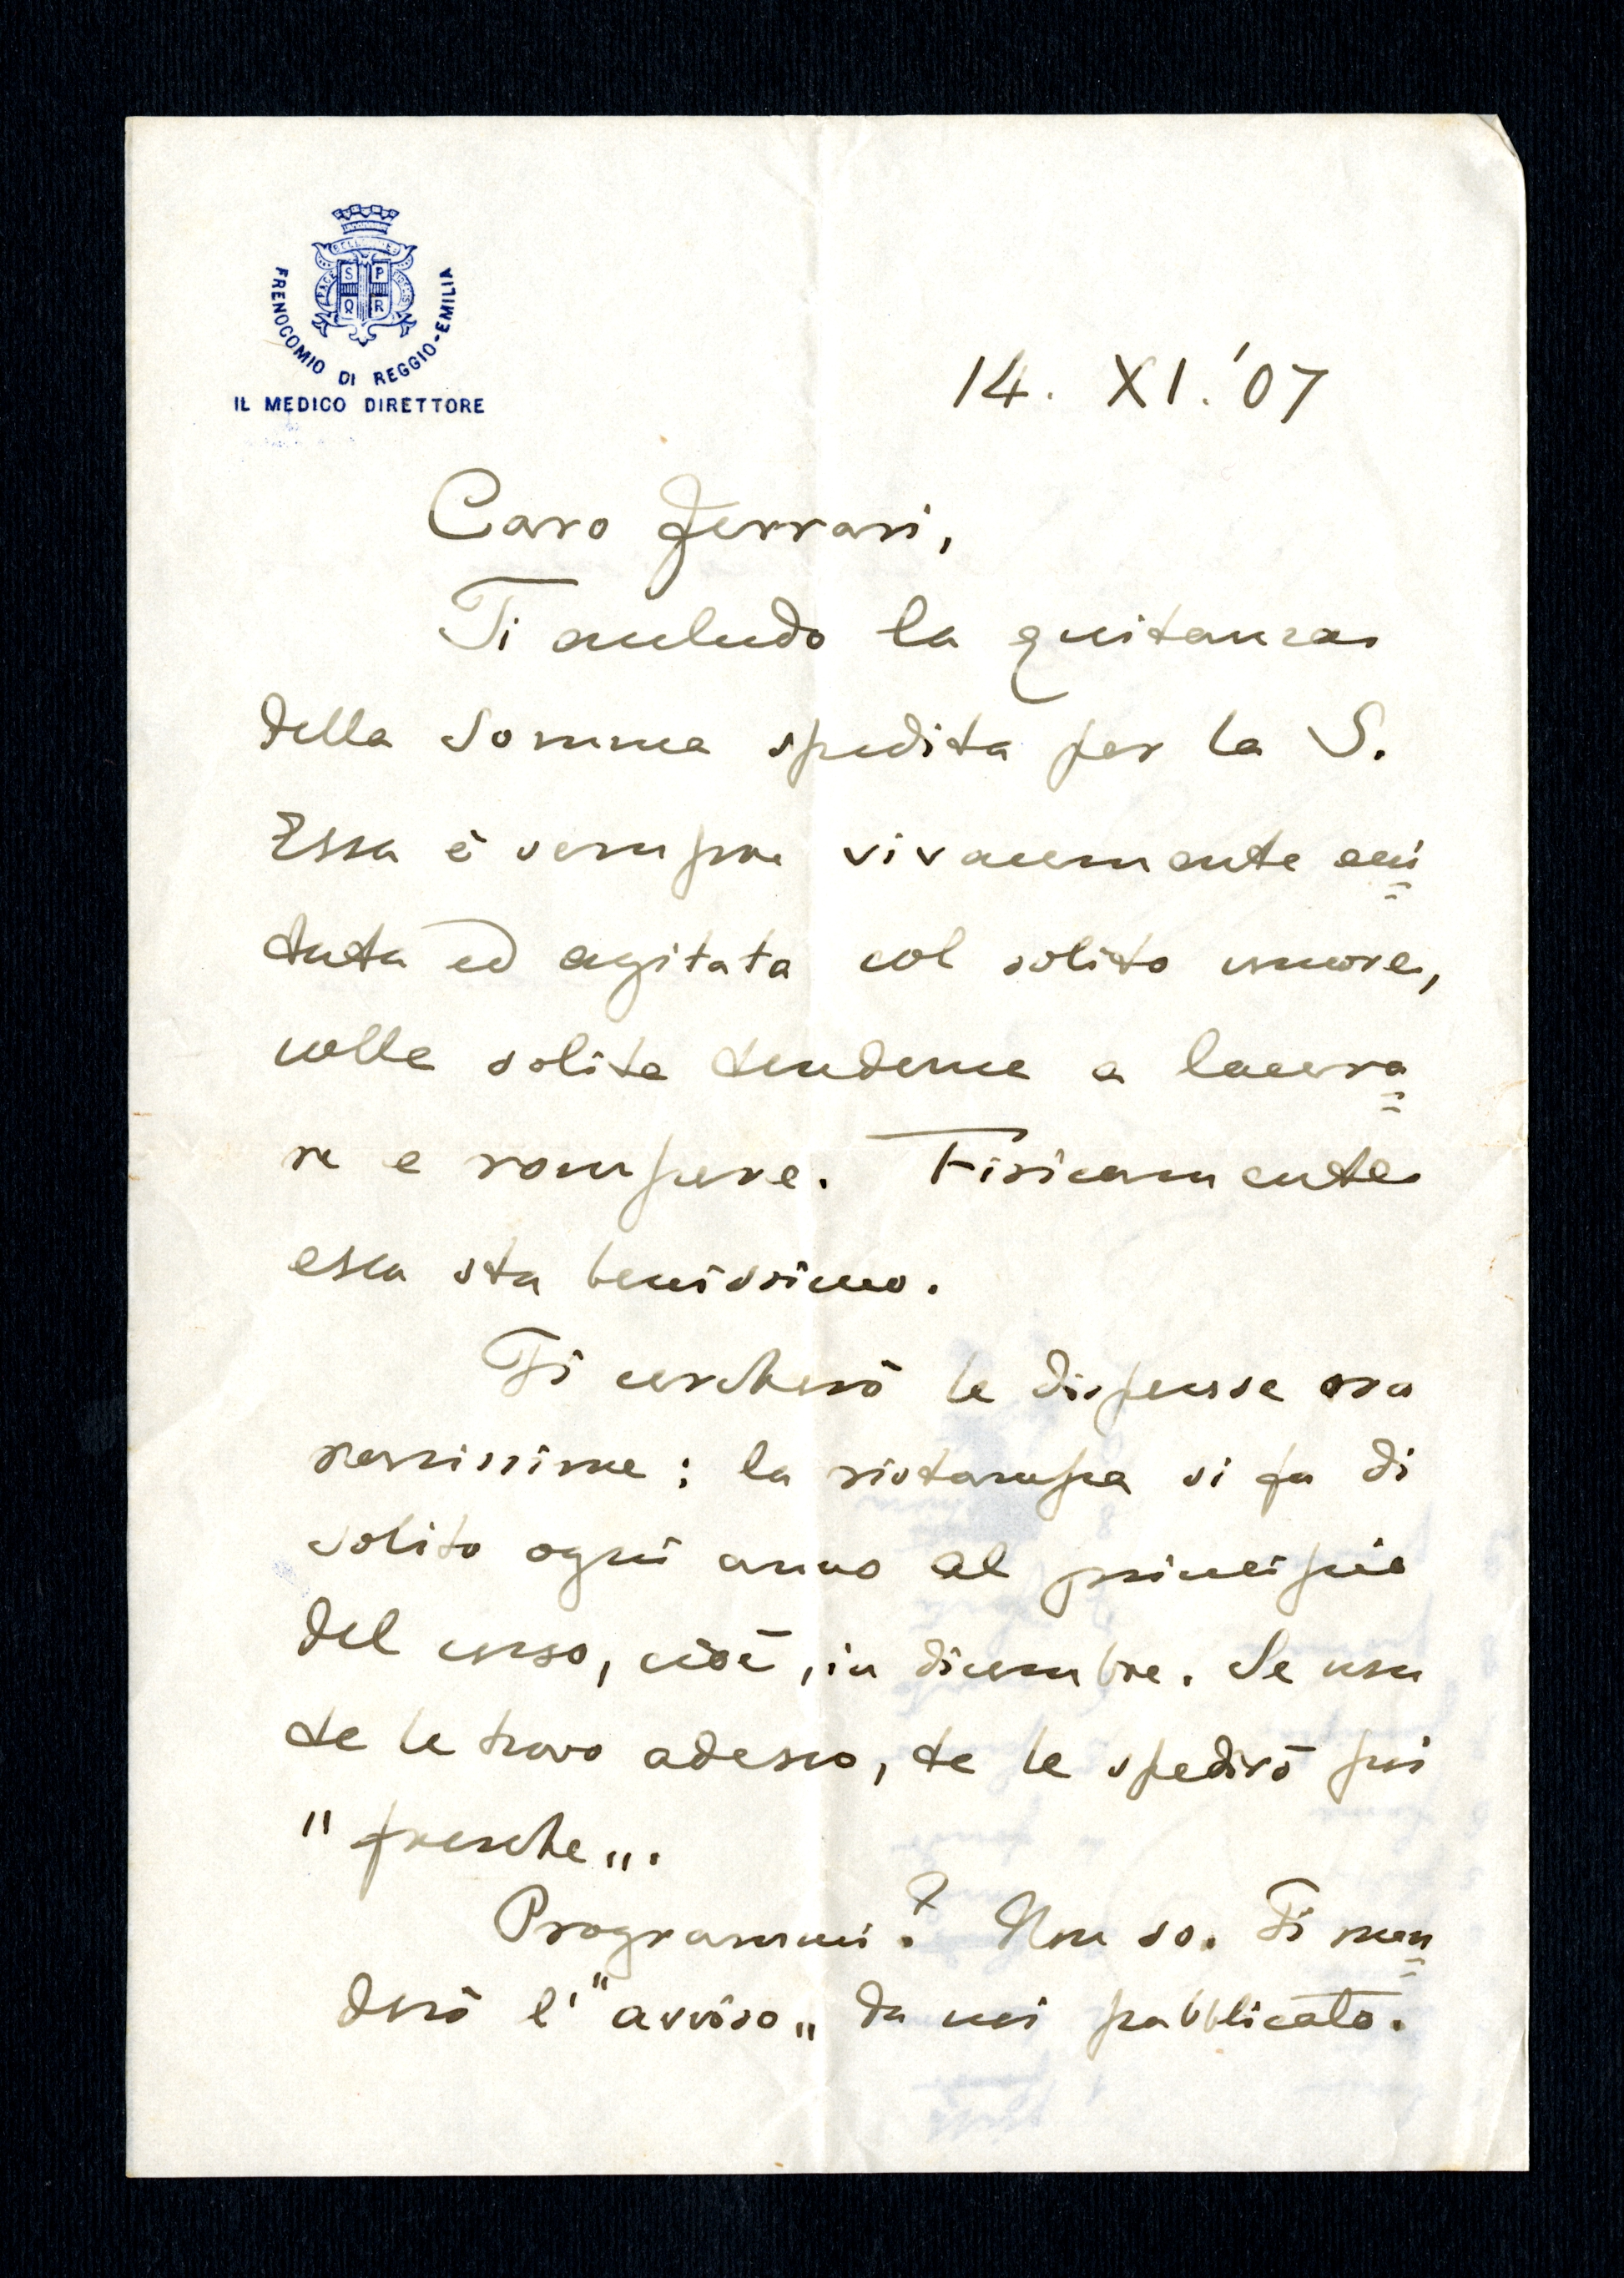 FRENOCOMIO DI REGGIO-EMILIA
IL MEDICO DIRETTORE
S P
Q R
14. XI. '07
Caro Ferrari,
Ti accludo la quitanza
della somma spedita per la S.
Essa è sempre vivacemente ecci=
tata ed agitata col solito umore,
colle solite tendenze a lacera=
re e rompere. Fisicamente
essa sta benissimo.
Ti cercherò le dispense ora
rarissime: la ristampa si fa di
solito ogni anno al principio
del corso, cioè, in dicembre. Se non
te le trovo adesso, te le spedirò poi
"fresche„.
Programmi? Non so. Ti man=
derò l'"avviso„ da noi pubblicato.